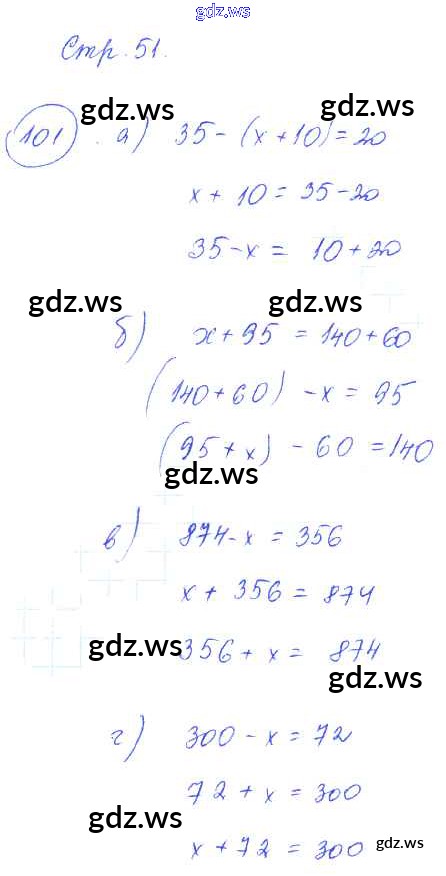 gdz.ws
Стр. 51.
gdz.ws gdz.ws
101. а) 35 - (x + 10) = 20
x + 10 = 35 - 20
35 - x = 10 + 20
gdz.ws gdz.ws
б) x + 95 = 140 + 60
(140 + 60) - x = 95
(95 + x) - 60 = 140
gdz.ws
в) 874 - x = 356
x + 356 = 874
gdz.ws 356 + x = 874
gdz.ws
г) 300 - x = 72
72 + x = 300
gdz.ws
x + 72 = 300 gdz.ws